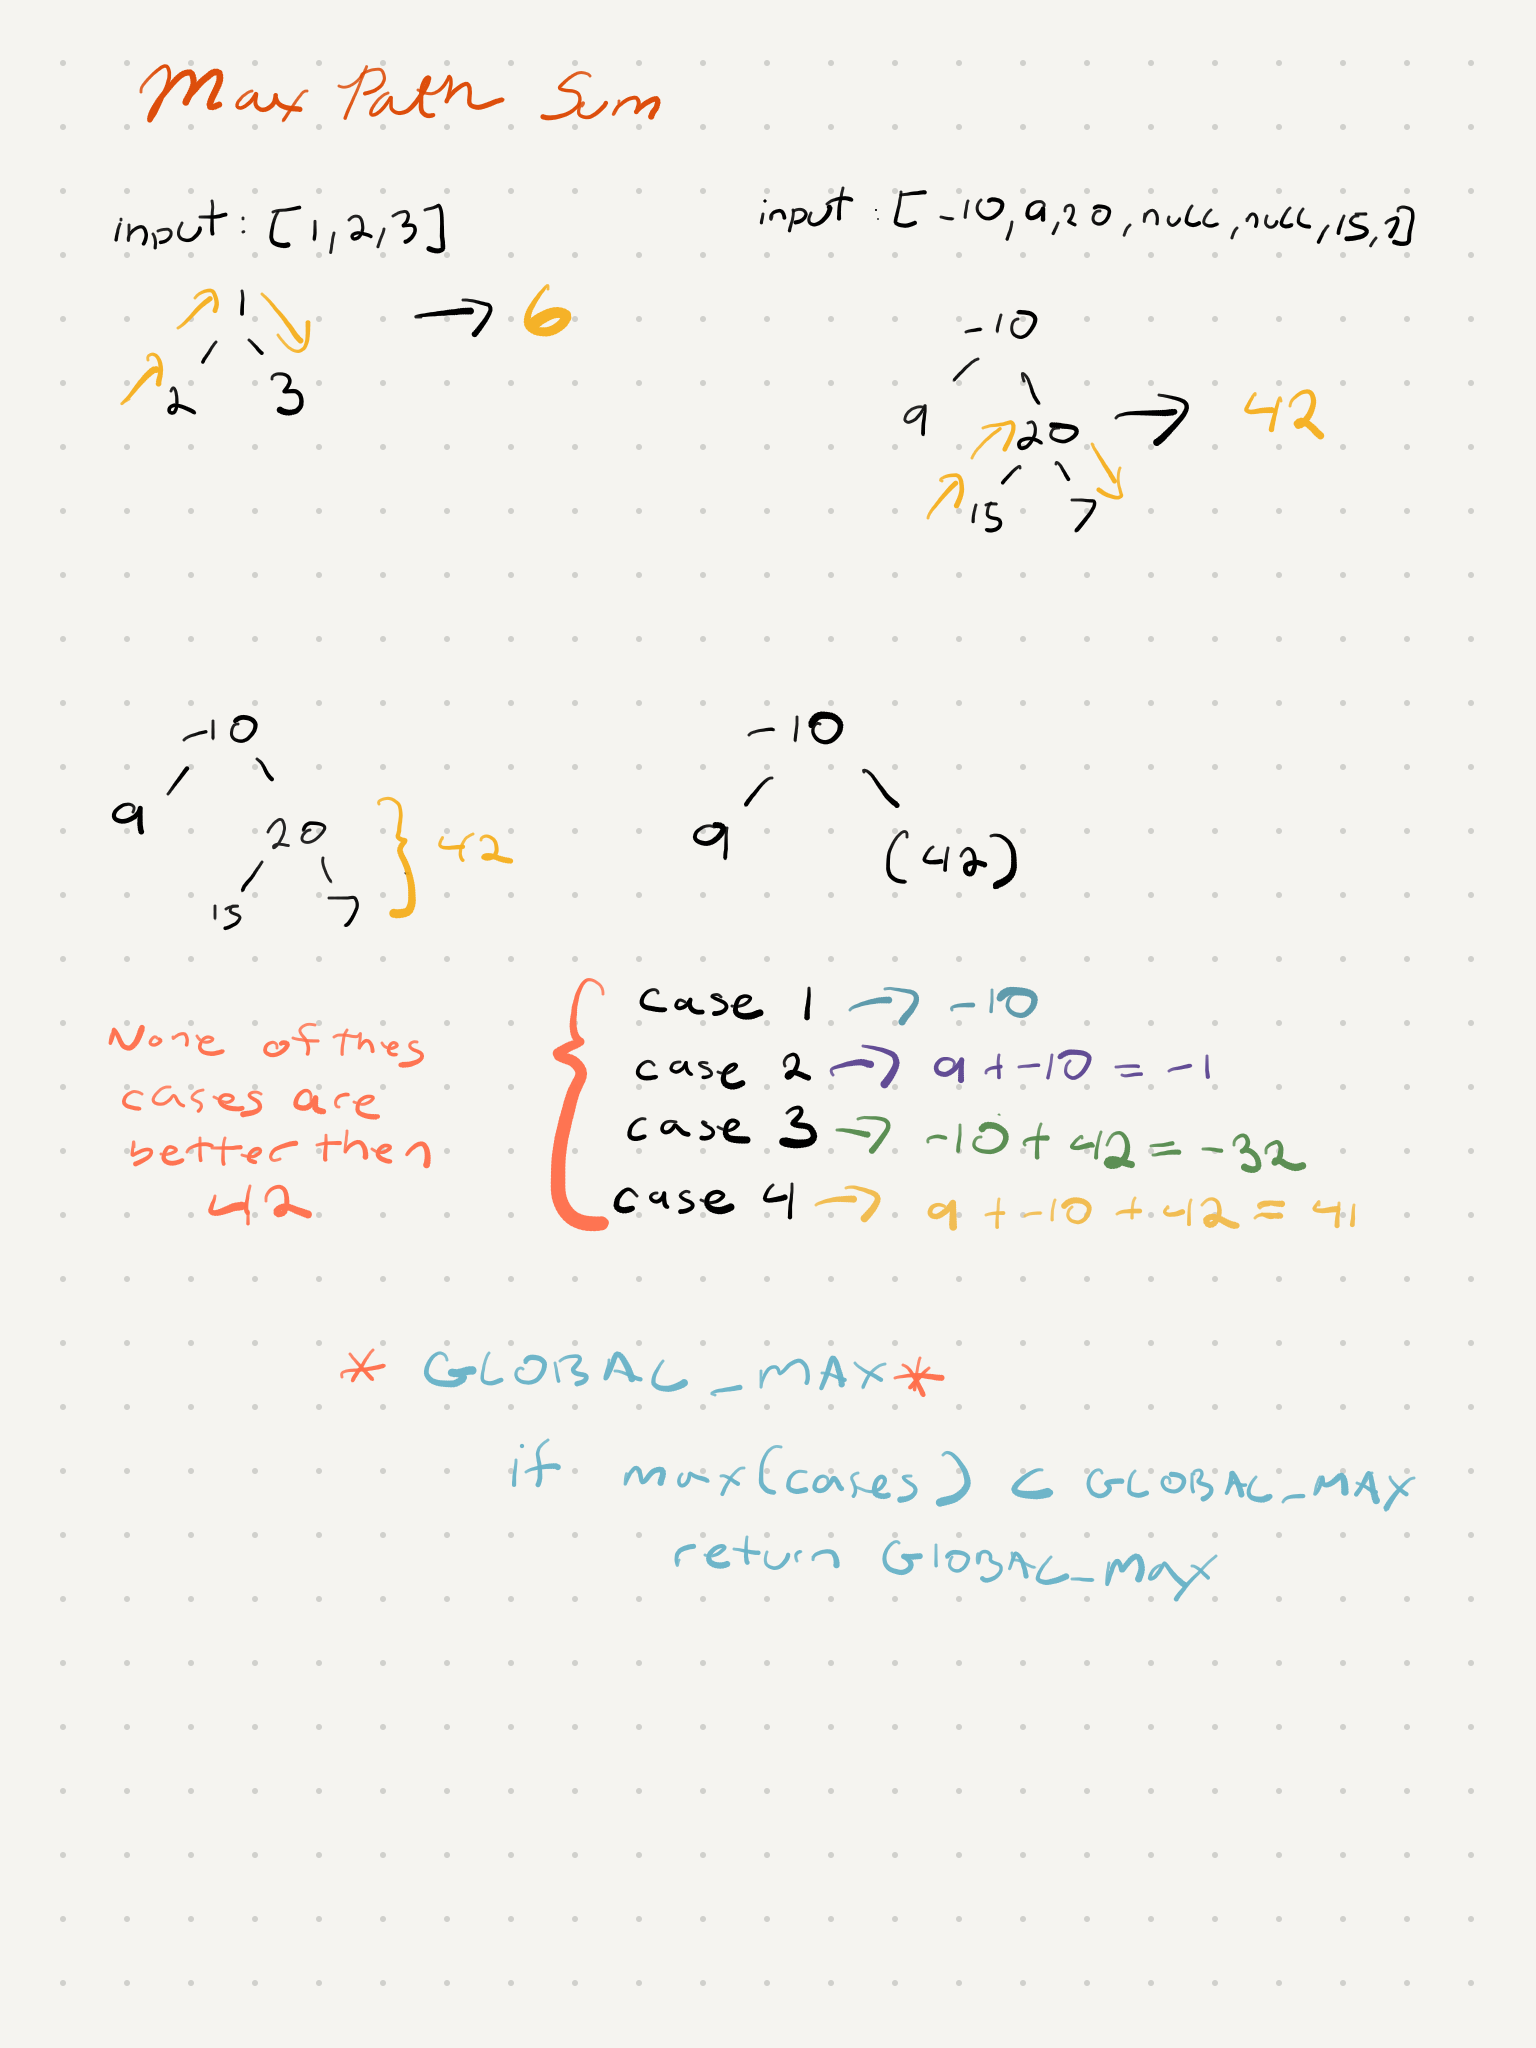 Max Path Sum
input: [1,2,3]
1
2 3
→ 6
input: [-10,9,20,null,null,15,7]
-10
9
20 → 42
15 7
-10
9
20
15 7
} 42
-10
9
(42)
None of thes
cases are
better then
42
{
case 1 → -10
case 2 → 9 + -10 = -1
case 3 → -10 + 42 = -32
case 4 → 9 + -10 + 42 = 41
* GLOBAL_MAX *
if max(cases) < GLOBAL_MAX
return GlOBAL_Max